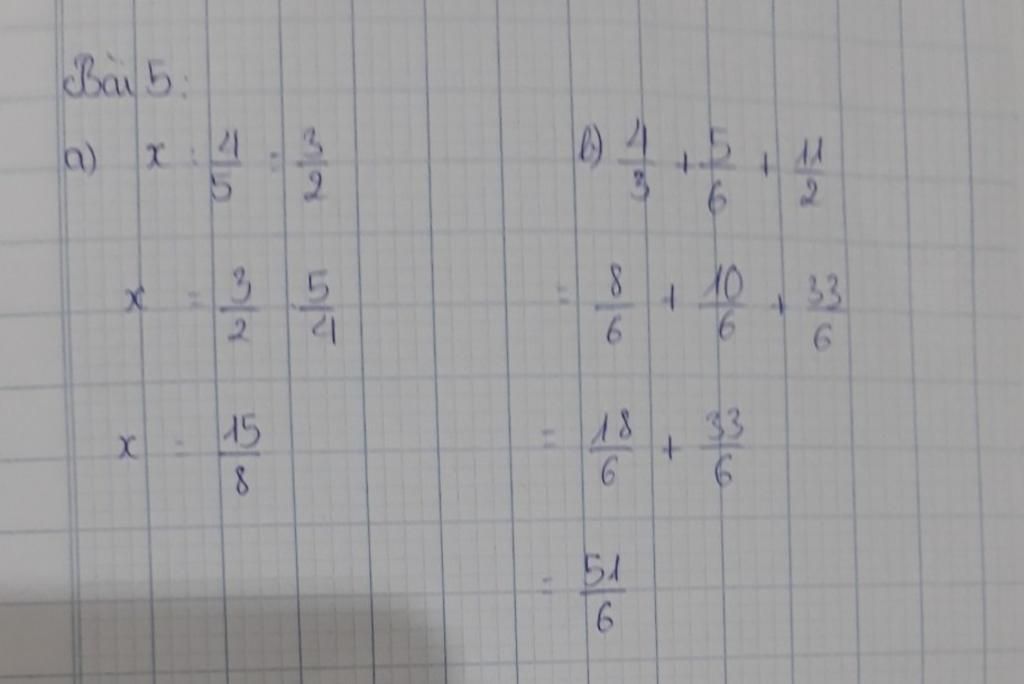 Bài 5:
a) x : 4/5 = 3/2
x = 3/2 . 5/4
x = 15/8
b) 4/3 + 5/6 + 11/2
= 8/6 + 10/6 + 33/6
= 18/6 + 33/6
= 51/6